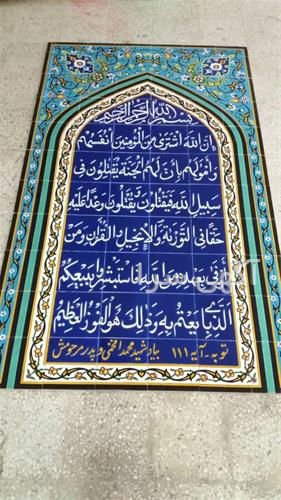 بسم الله الرحمن الرحیم
إن الله اشترى من المؤمنين أنفسهم
وأموالهم بأن لهم الجنة يقتلون فى
سبيل الله فيقتلون ويقتلون وعدا عليه
حقا فى التورىة والإنجيل والقرآن ومن
أوفى بعهده من الله فاستبشروا ببيعكم
الذى بايعتم به وذلك هو الفوز العظيم
توبه - آیه ۱۱۱ بیاد شهید محمد و پدر مرحومش